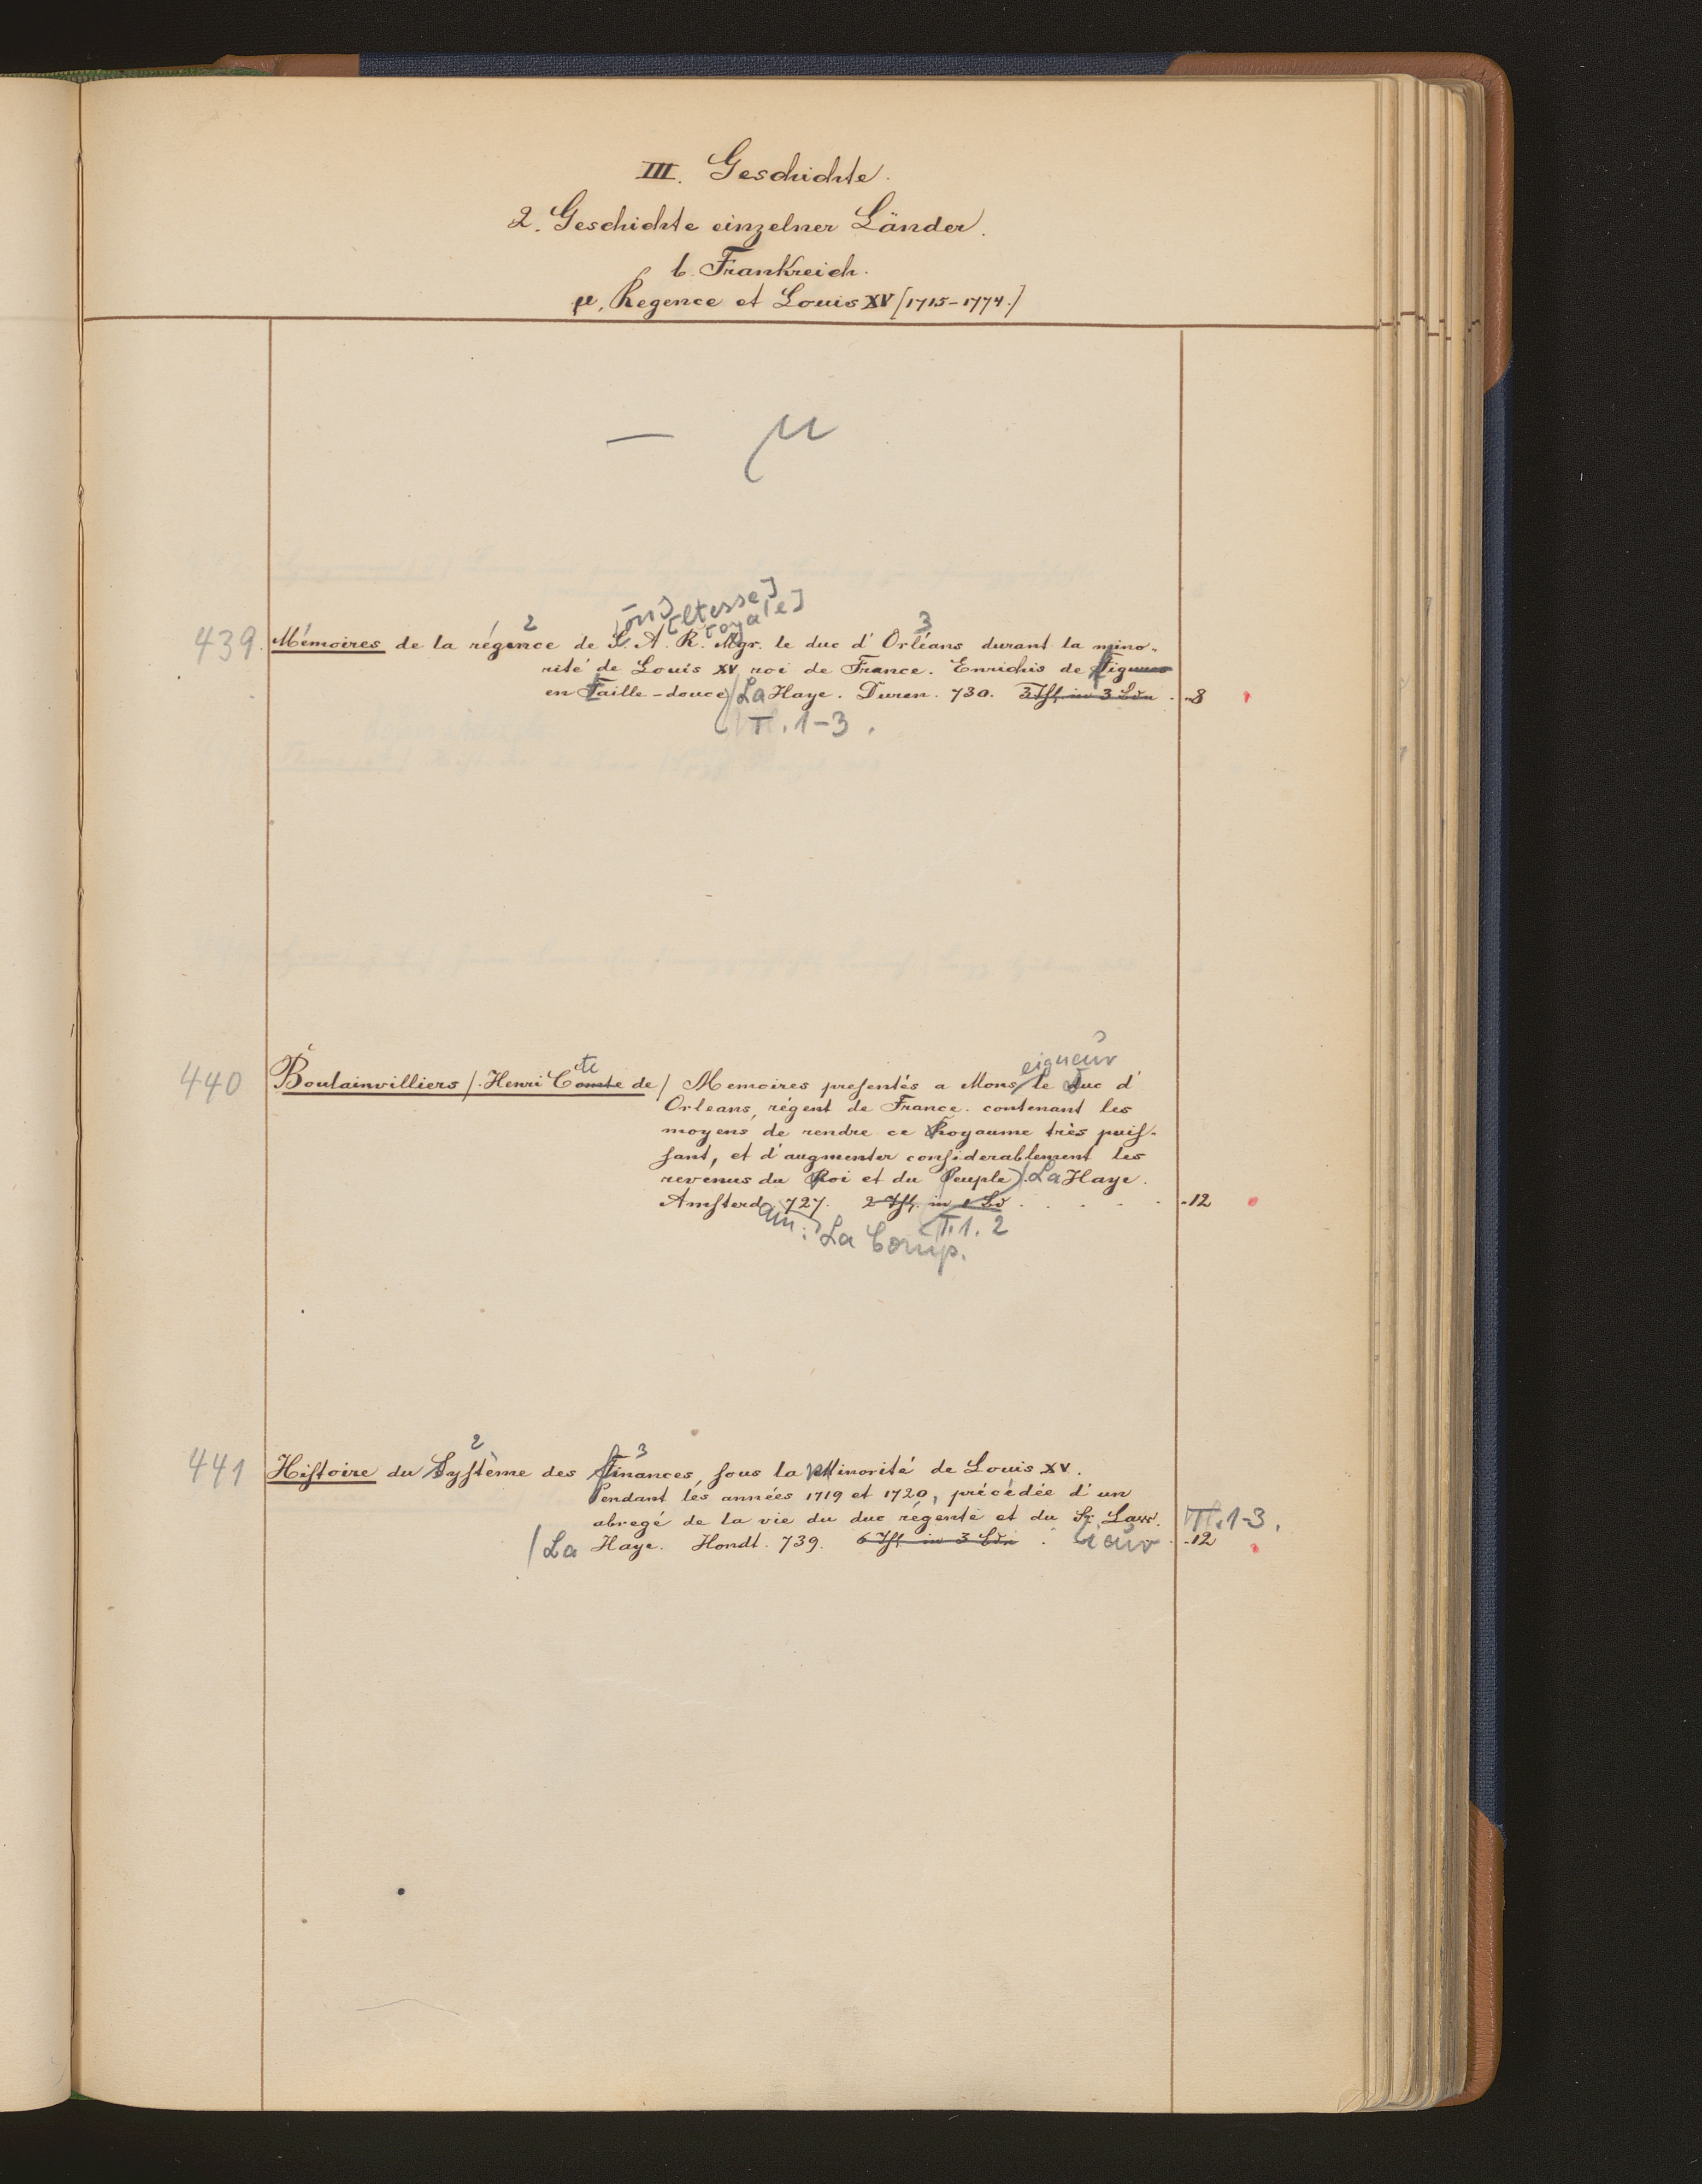 III. Geschichte.
2. Geschichte einzelner Länder.
b. Frankreich.
μ. Regence et Louis XV [1715-1774.]
— μ
[on] [ltesse]
[oya[le]
2 3
439. Mémoires de la régence de S. A. R. Mgr. le duc d'Orléans durant la mino-
rité de Louis XV roi de France. Enrichis de Figures
en Taille-douce / La Haye. Duren. 730. 3 Thl. in 3 Bdn . -8
T. 1-3.
te eigneur
440 Boulainvilliers /. Henri Comte de / Memoires presentés a Mons le Duc d'
Orleans, régent de France. contenant les
moyens de rendre ce Royaume très puiſ-
ſant, et d'augmenter conſiderablement les
revenus du Roi et du Peuple / La Haye.
Amſterd 727. 2 Thl. in 1 Bd . . . . -12
am: La Comp. T. 1. 2
2 3
441 Hiſtoire du Syſtème des Finances, ſous la Minorité de Louis XV.
Pendant les années 1719 et 1720, précédée d'un
abregé de la vie du duc régente et du Sr. Law. T. 1-3.
/ La Haye. Hondt. 739. 6 Thl. in 3 Bdn . ieur -12